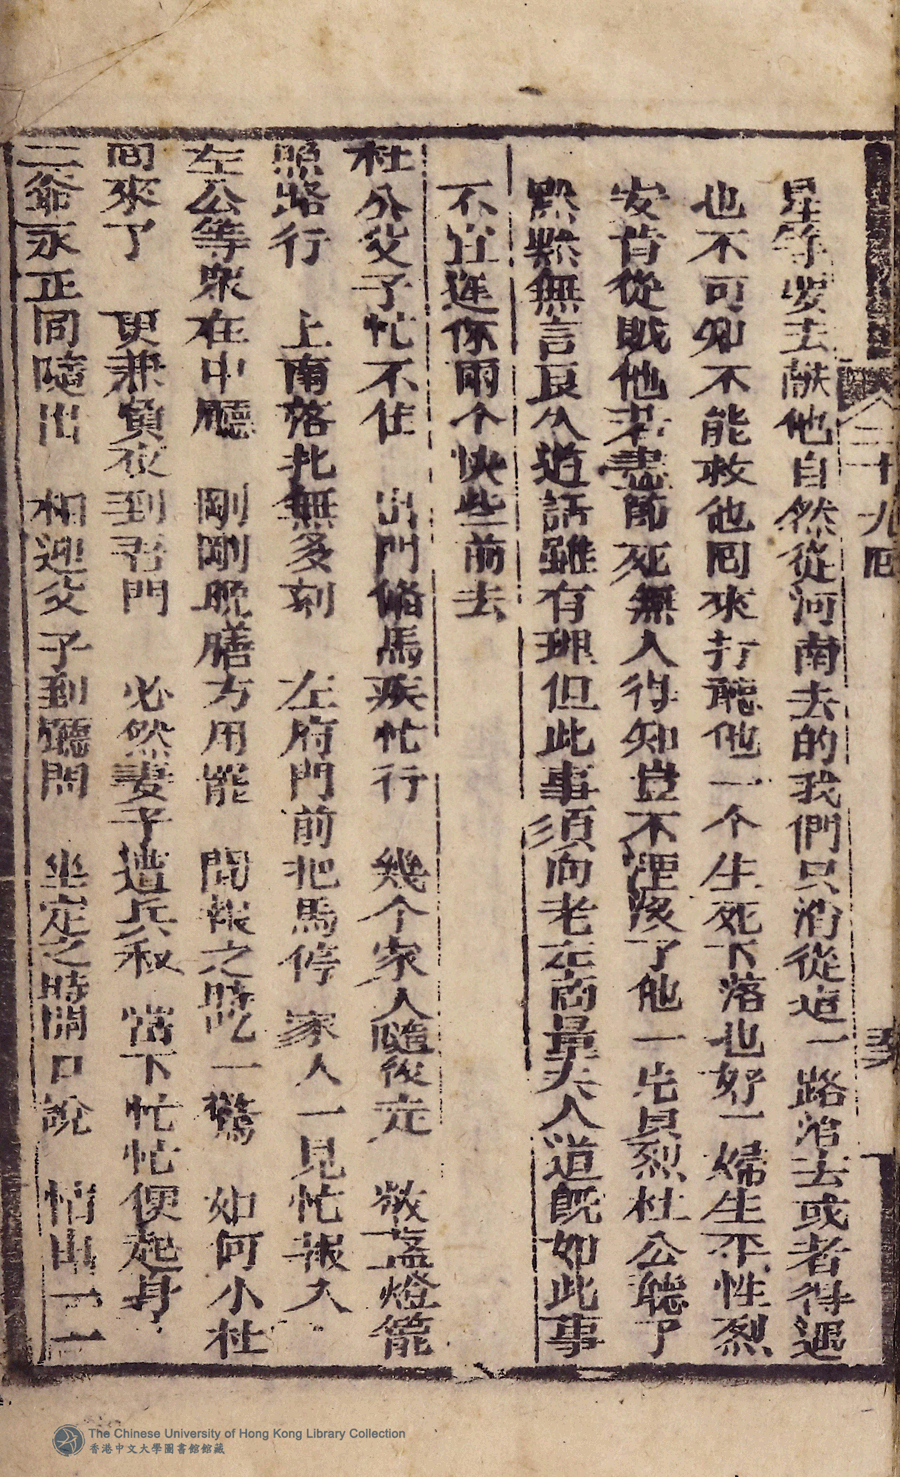 卷二十九回
是等要去献他自然從河南去的我們只消從這一路治去或者得遇
也不可知不能救他囘來打聽他一个生死下落也好一婦生不性烈
安肯從賊他若盡節死無人得知豈不湮没了他一片貞烈杜公聽了
默默無言良久道話雖有理但此事須向老左商量夫人道旣如此事
不宜遲你兩个快些前去
杜公父子忙不住　出門備馬疾忙行　幾个家人隨後走　数盞燈籠
照路行　上南落北無多刻　左府門前把馬停　家人一見忙報入
左公等衆在中廳　剛剛晚膳方用罷　聞報之時吃一驚　如何小杜
囘來了　更兼負夜到君門　必然妻子遭兵
當下忙忙便起身
二爺永正同隨出　相迎父子到廳間　坐定之時開口說　情由一一
The Chinese University of Hong Kong Library Collection
香港中文大學圖書館館藏